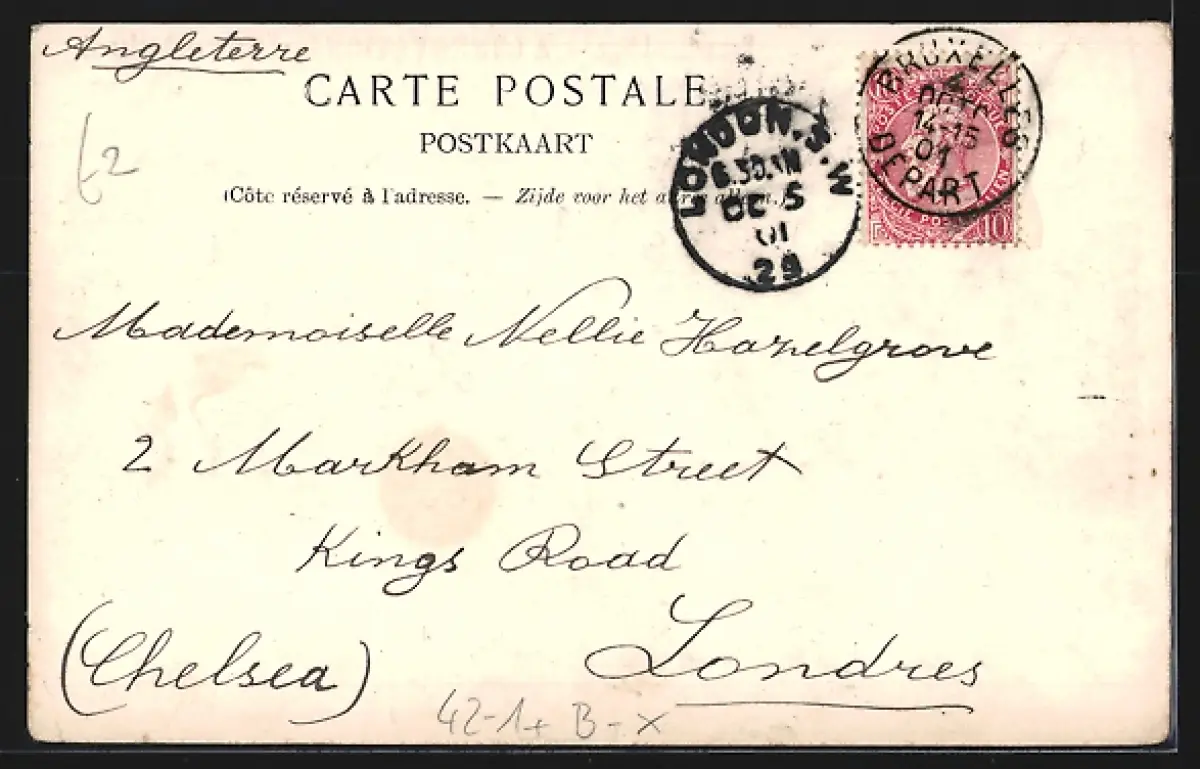 Angleterre
CARTE POSTALE
POSTKAART
(Côte réservé à l'adresse. — Zijde voor het adres alleen.)
LONDON. S.W
6.30 AM
OC 5
01
29
BRUXELLES
4
OCT
14-15
01
DEPART
10
62
Mademoiselle Nellie Hazelgrove
2 Markham Street
Kings Road
(Chelsea) Londres
42-1+ B-x